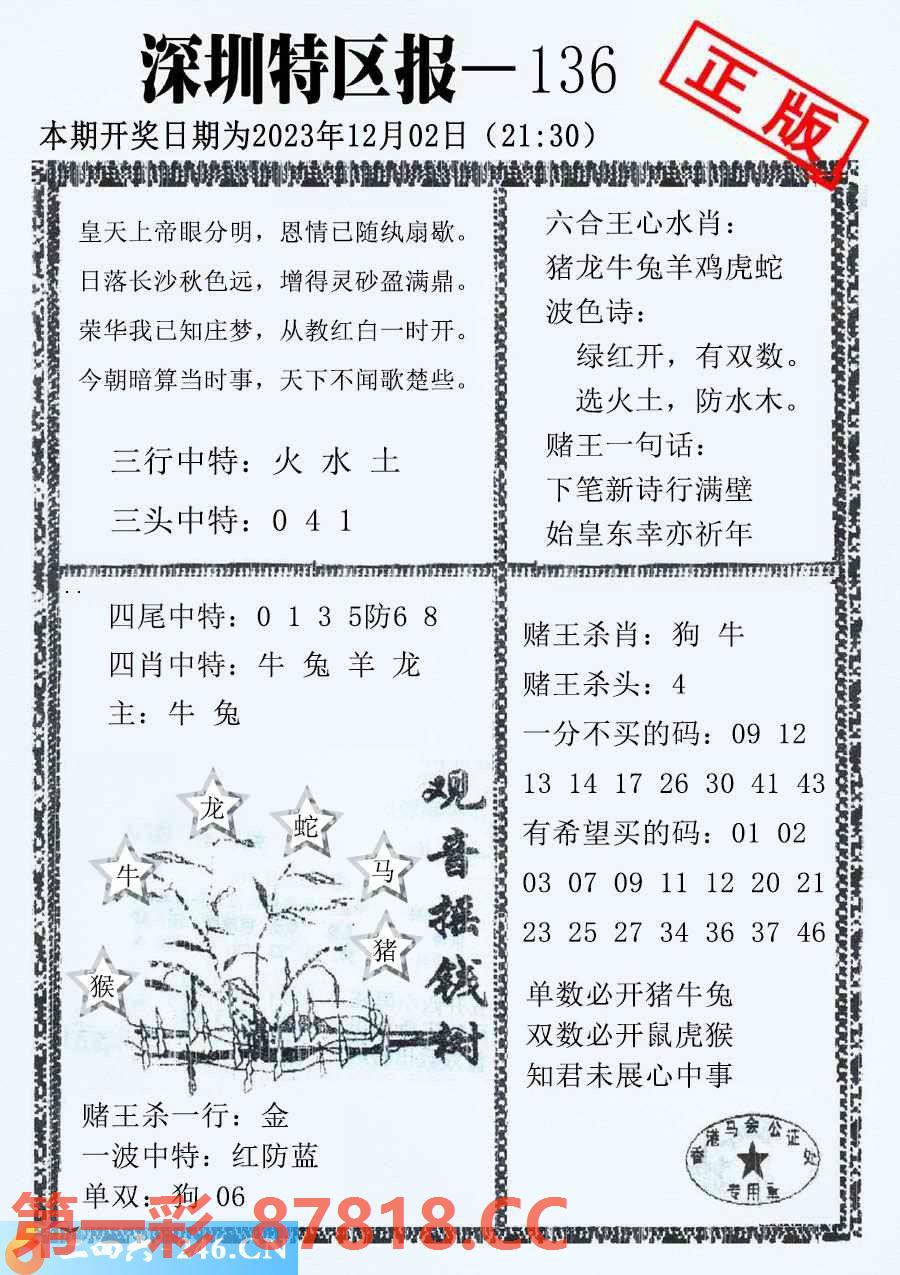 深圳特区报—136
正版
本期开奖日期为2023年12月02日（21:30）
皇天上帝眼分明，恩情已随纨扇歇。
日落长沙秋色远，增得灵砂盈满鼎。
荣华我已知庄梦，从教红白一时开。
今朝暗算当时事，天下不闻歌楚些。
三行中特：火 水 土
三头中特：0 4 1
六合王心水肖：
猪龙牛兔羊鸡虎蛇
波色诗：
绿红开，有双数。
选火土，防水木。
赌王一句话：
下笔新诗行满壁
始皇东幸亦祈年
四尾中特：0 1 3 5防6 8
四肖中特：牛 兔 羊 龙
主：牛 兔
龙
蛇
牛
马
猪
猴
观音摇钱树
赌王杀一行：金
一波中特：红防蓝
单双：狗 06
赌王杀肖：狗 牛
赌王杀头：4
一分不买的码：09 12
13 14 17 26 30 41 43
有希望买的码：01 02
03 07 09 11 12 20 21
23 25 27 34 36 37 46
单数必开猪牛兔
双数必开鼠虎猴
知君未展心中事
香港马会公证处
专用章
第一彩 87818.CC
246.CN